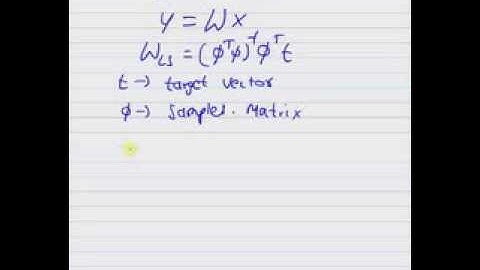 y = Wx
W_LS = (φᵀφ)⁻¹φᵀt
t → target vector
φ → samples. Matrix